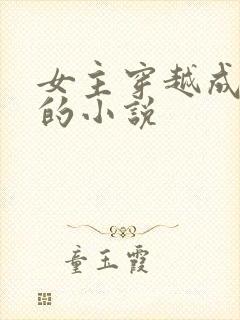 女主穿越成
的小说
童玉霞